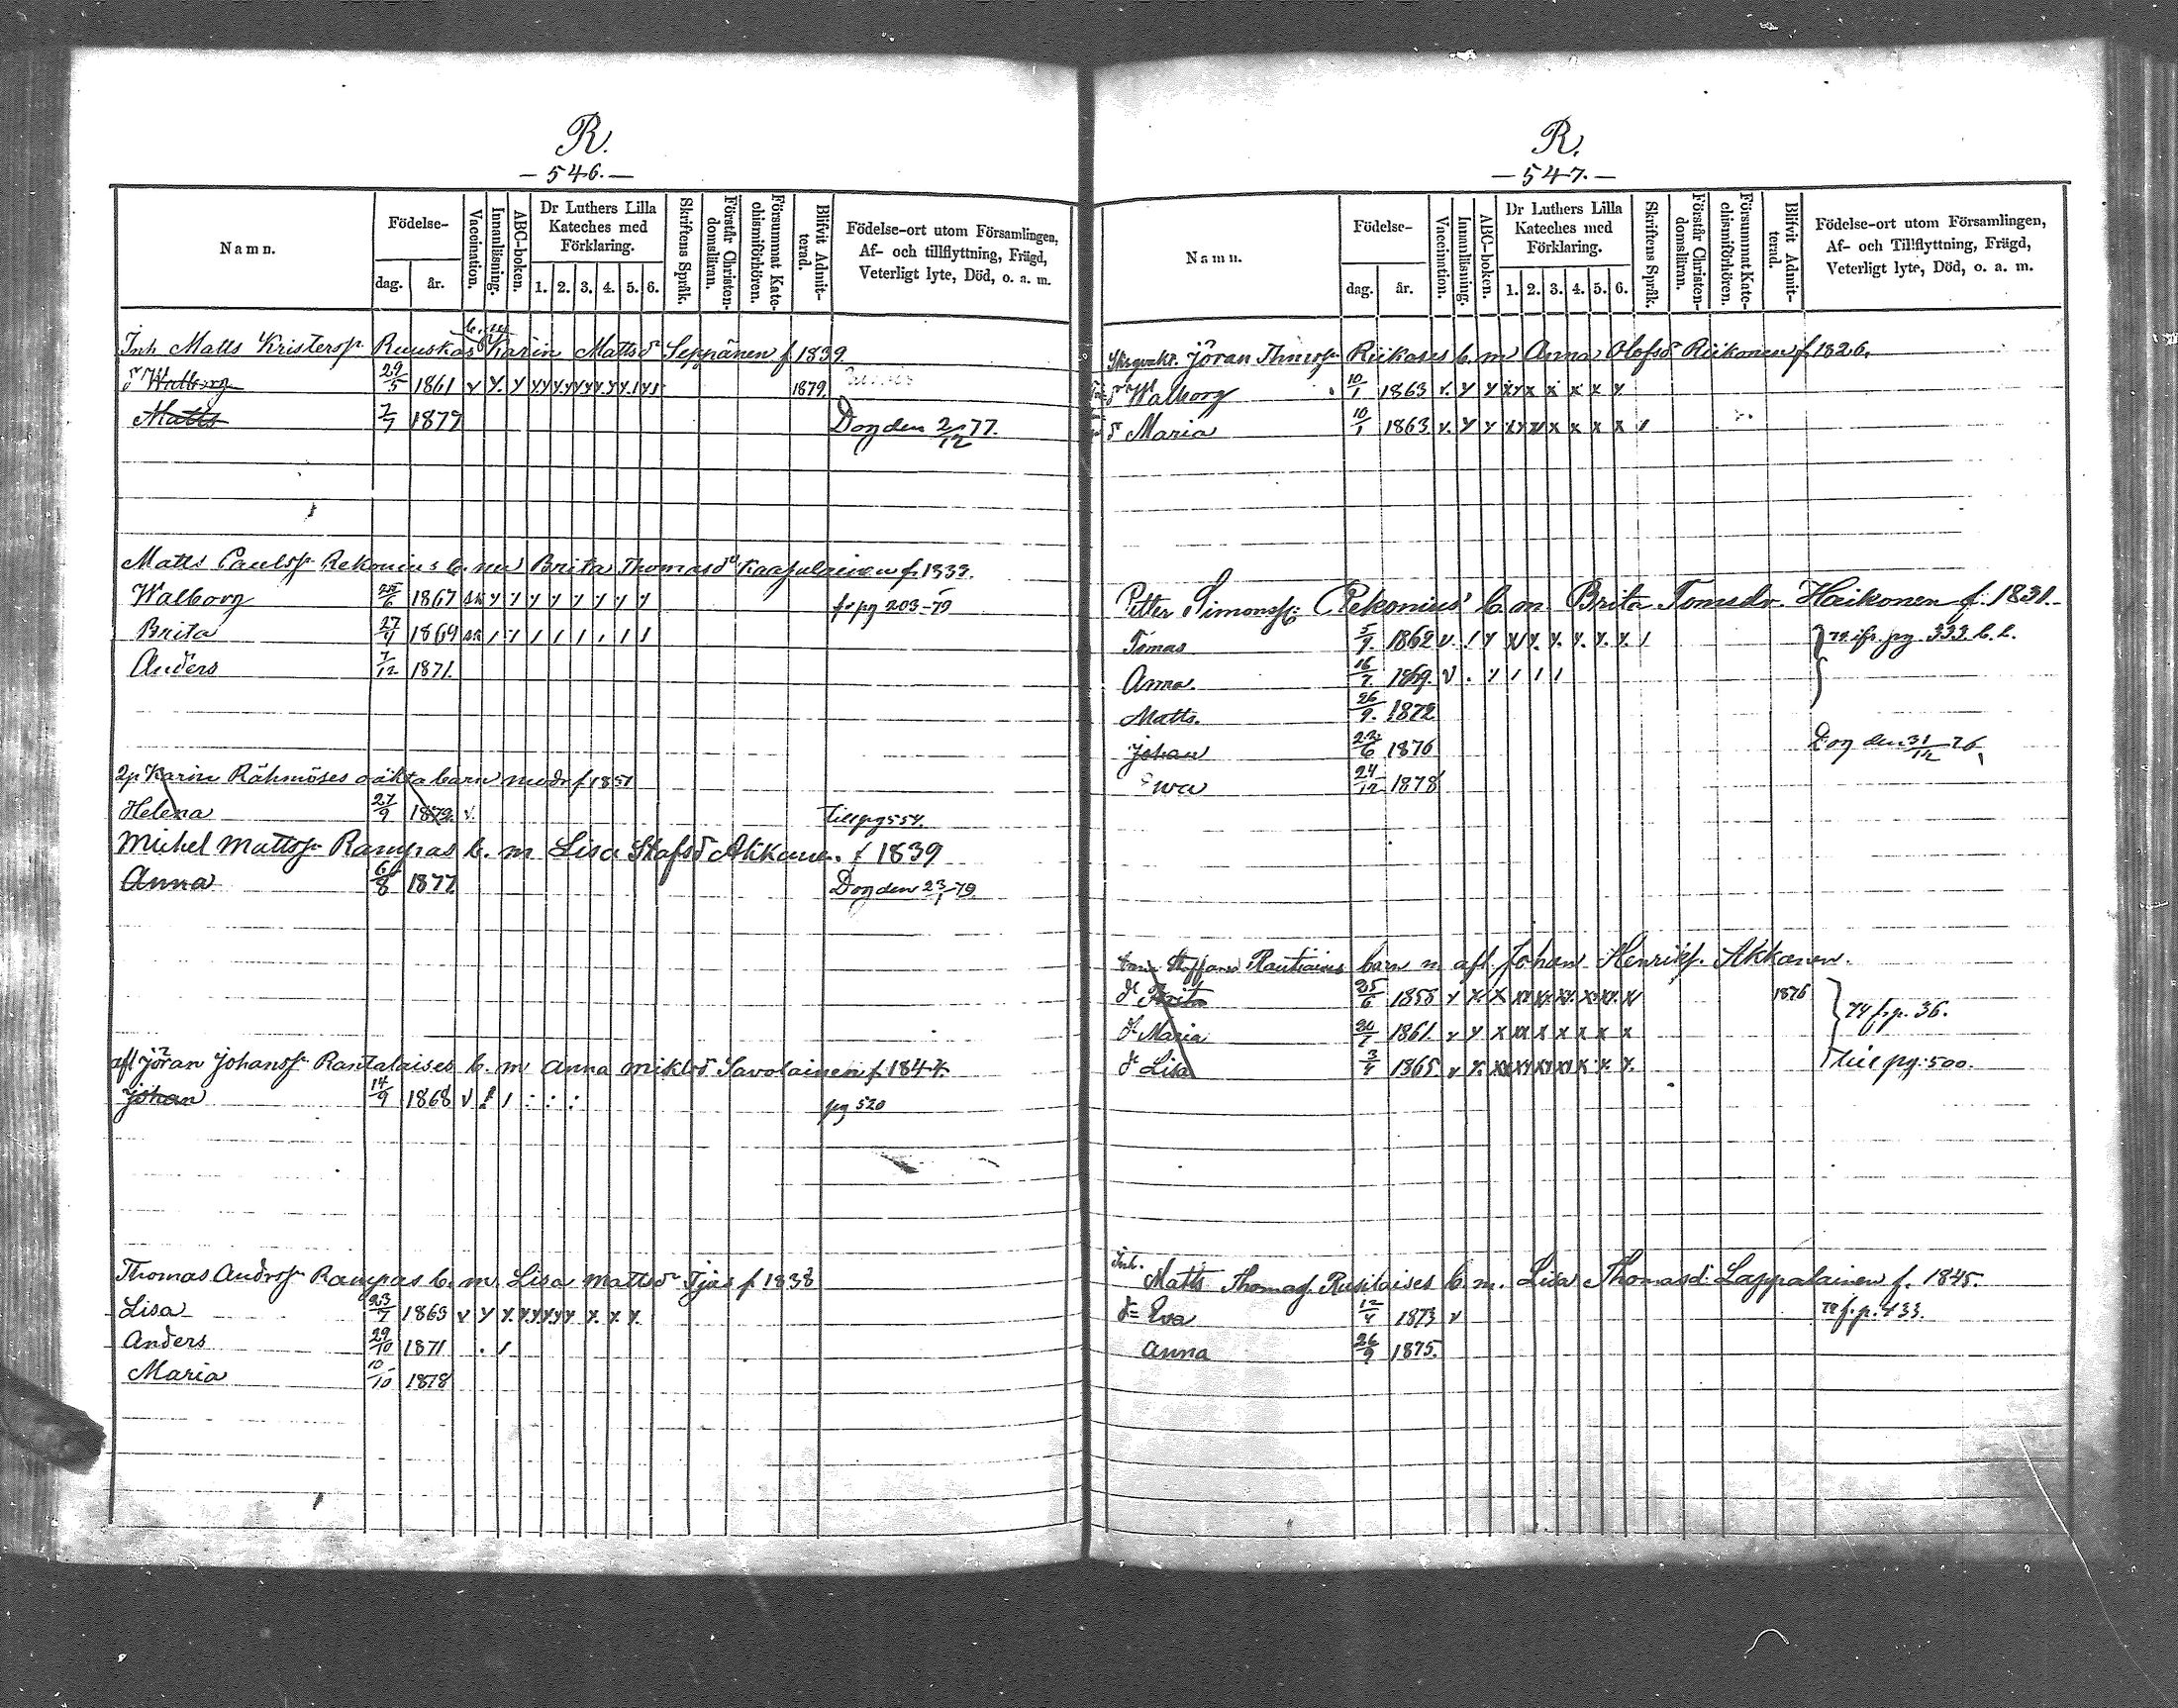 R.
— 546. —
Namn.
Födelse-
dag.
år.
Vaccination.
Innanläsning.
ABC-boken.
Dr Luthers Lilla Kateches med Förklaring.
1. 2. 3. 4. 5. 6.
Skriftens Språk.
Förstår Christendomsläran.
Försummat Katechismiförhören.
Blifvit Admitterad.
Födelse-ort utom Församlingen, Af- och tillflyttning, Frägd, Veterligt lyte, Död, o. a. m.
Inh Matts Kristersp Ruuskas b. m Karin Mattsd Seppänen f 1839
d Walborg 29/5 1861 1879
Matts 7/7 1877 Dog den 2/12 77.
Matts Paulsp Rekonius b. m Brita Thomasdr Kaasalainen f. 1833.
Walborg 25/6 1867 fr pg 203-79
Brita 27/4 1869
Anders 7/12 1871.
Karin Rähmöses oäkta barn modr f 1851
Helena 27/9 1872 till pg 554.
Michel Mattsp Rampas b. m Lisa Stafsd Akkanen. f 1839
Anna 6/8 1877 Dog den 23/1 79.
afl Jöran Johansp Rantalaises b. m Anna Miklsd Savolainen f. 1844.
Johan 14/9 1868 pg 520
Thomas Andrsp Rampas b. m Lisa Mattsdr Tjäs f 1838
Lisa 23/7 1863
Anders 29/10 1871
Maria 10/10 1878
R.
— 547. —
Namn.
Födelse-
dag.
år.
Vaccination.
Innanläsning.
ABC-boken.
Dr Luthers Lilla Kateches med Förklaring.
1. 2. 3. 4. 5. 6.
Skriftens Språk.
Förstår Christendomsläran.
Försummat Katechismiförhören.
Blifvit Admitterad.
Födelse-ort utom Församlingen, Af- och Tillflyttning, Frägd, Veterligt lyte, Död, o. a. m.
Jöran Thmsp Riikoses b. m Anna Olofsd Riikonen f 1826.
d Walborg 10/1 1863
d Maria 10/1 1863
Petter Simonsp: Rekonius' b. m Brita Tomsdr. Haikonen f. 1831.
Tomas 5/9. 1862 pg. 333 b. k.
Anna. 16/7 1869.
Matts. 26/9. 1872
Johan 22/6 1876 Dog den 31/12 76
Ewa 24/12 1878
Staffans Rautiaines barn m afl. Johan Henriksp. Akkanen.
dr Brita 25/6 1858 1876 74 f. p. 36.
dr Maria 20/7 1861.
dr Lisa 3/4 1865 till pg: 500.
Inh.
Matts Thomasp. Rusilaises b. m. Lisa Thomasd: Lappalainen f. 1845.
dr Eva 12/4 1873 78 f. p. 433.
Anna 26/9 1875.